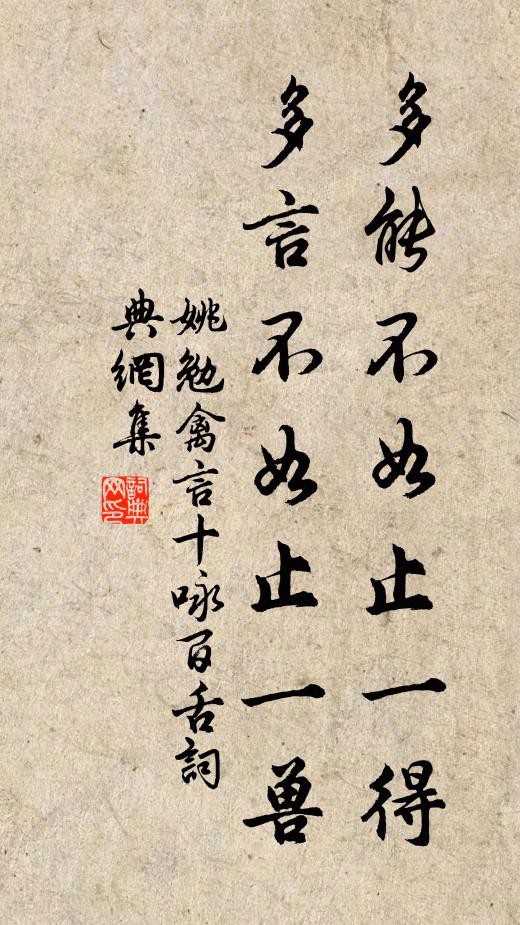 多能不如止一得
多言不如止一兽
姚勉禽言十咏百舌詞
典網集
詞典
网印